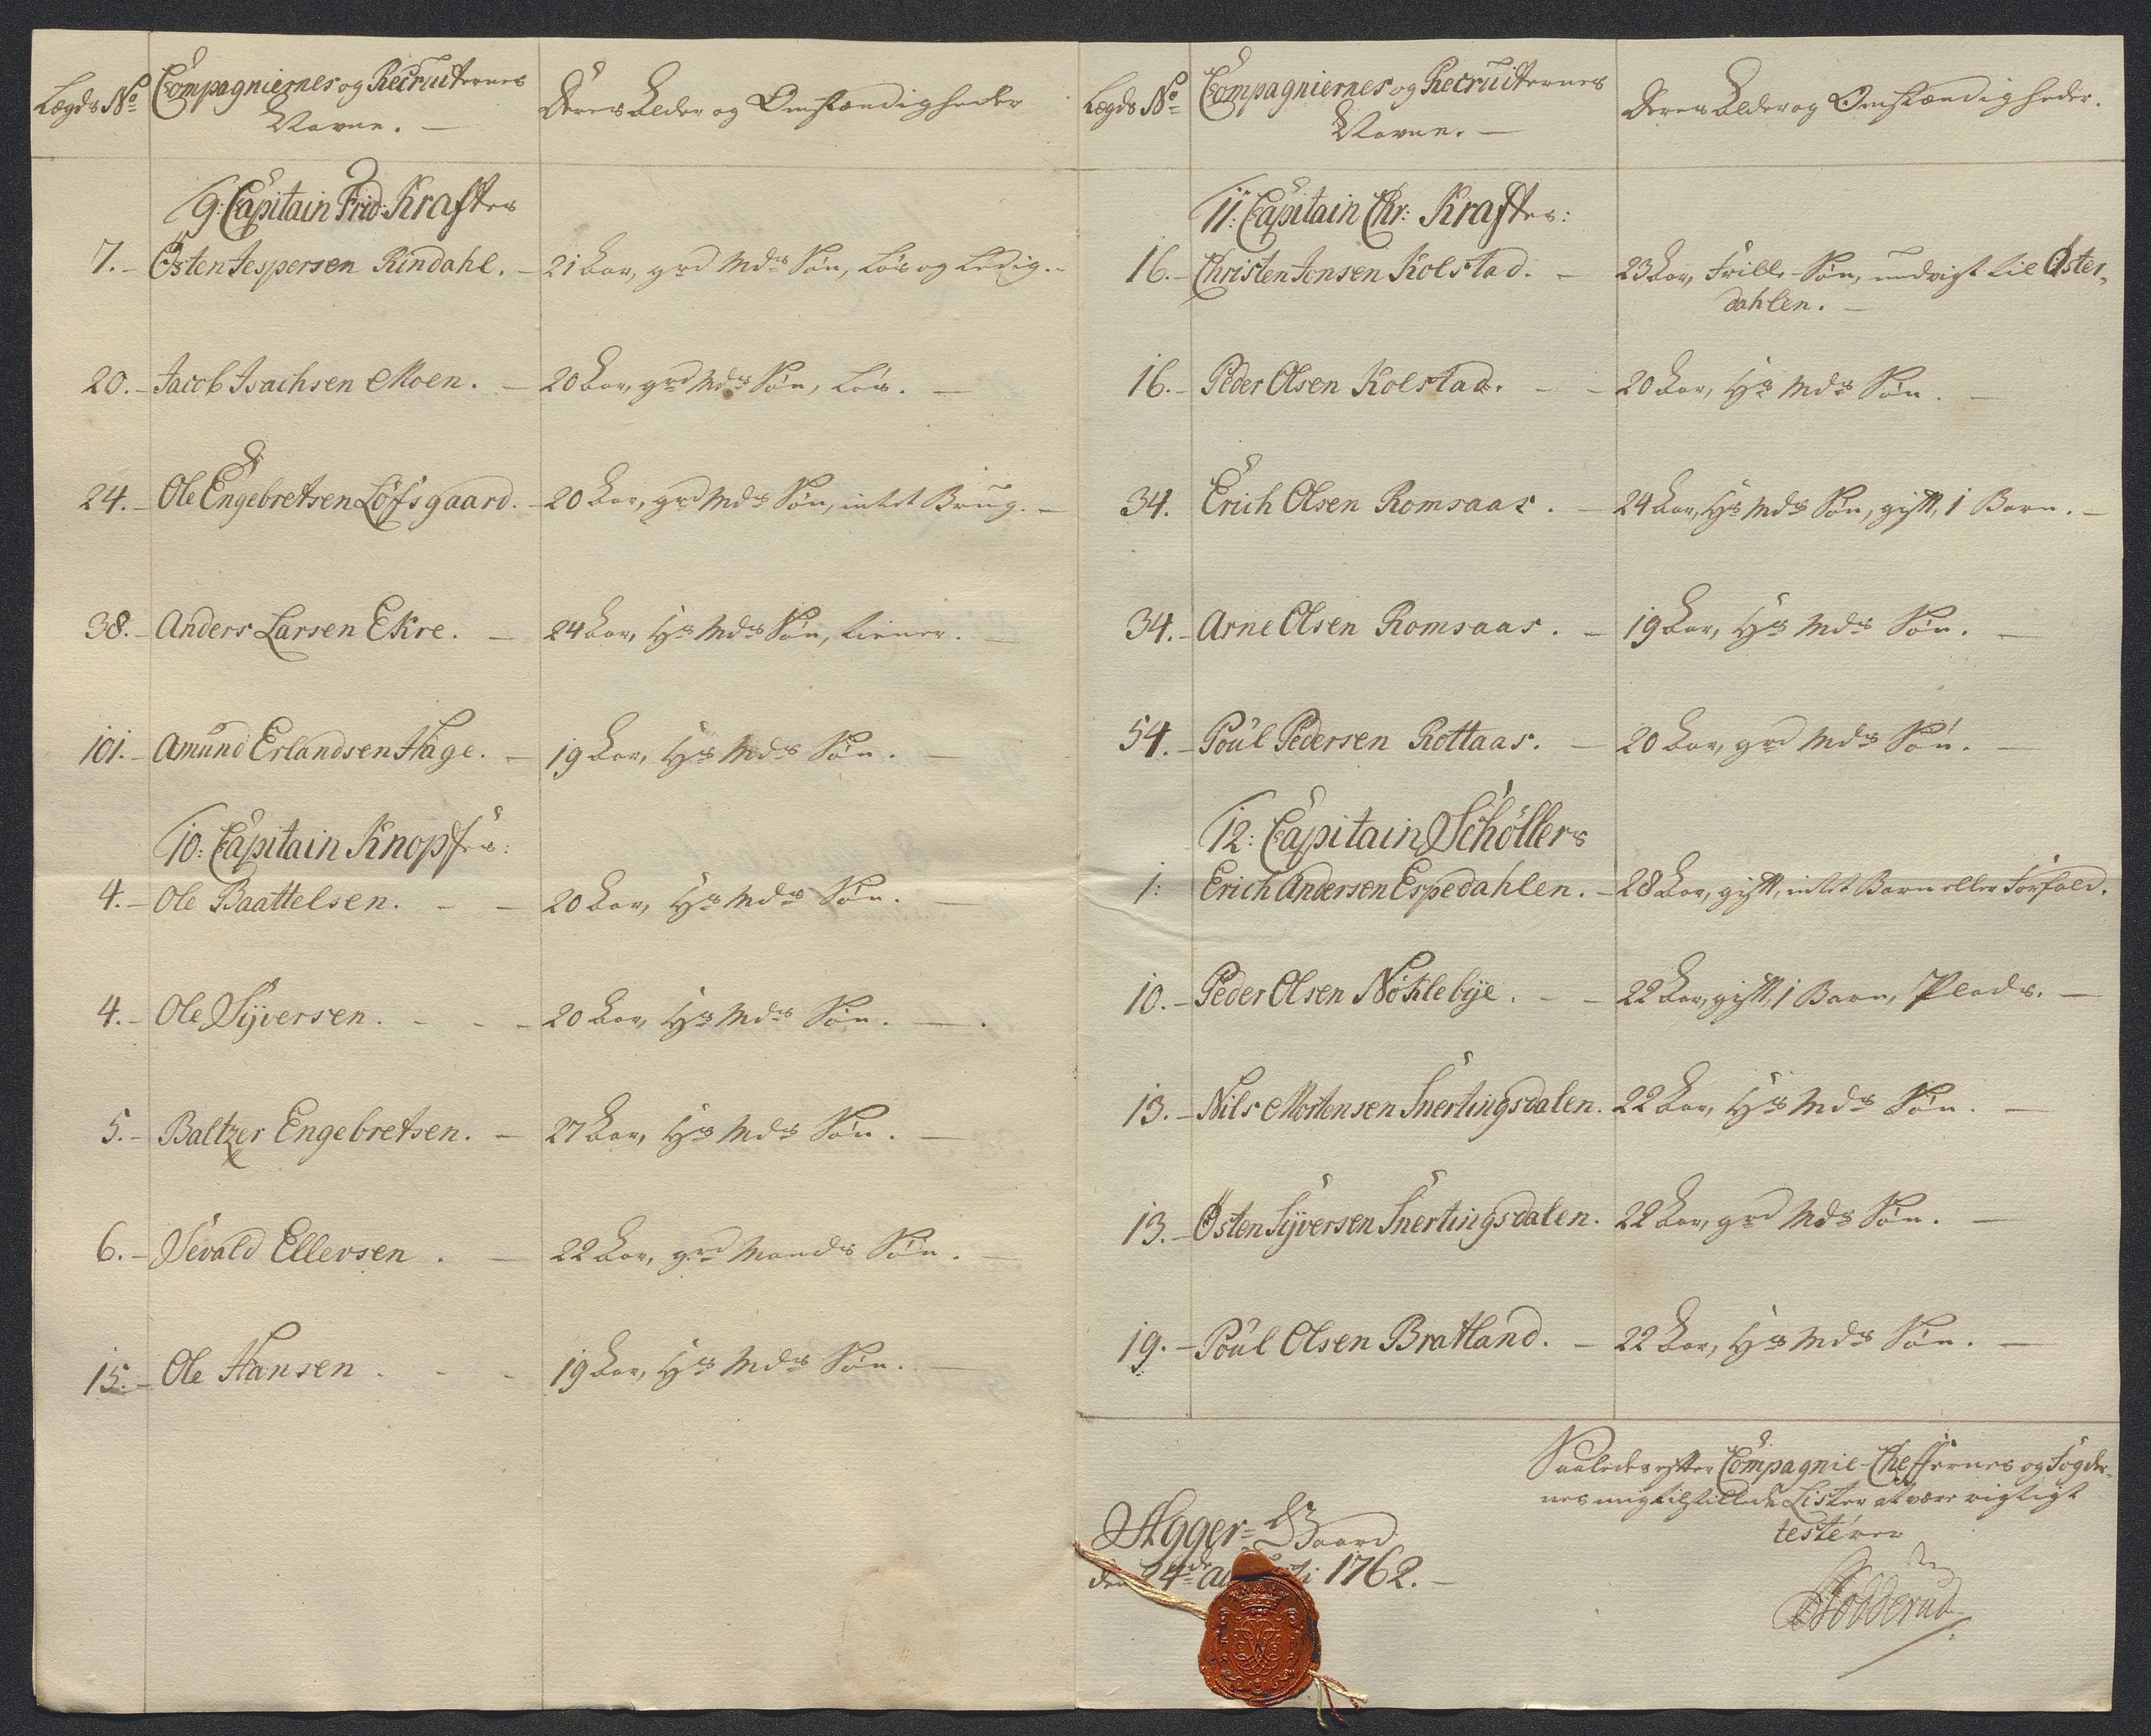 Lægds No Compagniernes og Recruiternes Deres Alder og Omstændigheder
Navne. —
9: Capitain Frid: Krafftes
7. - Östen Jespersen Rindahl. - 21 Aar, grd Mds Søn, løs og ledig. -
20. - Jacob Isachsen Moen. - 20 Aar, grd Mds Søn, løs. —
24. - Ole Engebretsen Löfsgaard. - 20 Aar, grd Mds Søn, intet Brug. -
38. - Anders Larsen Ekre. - 24 Aar, Hs Mds Søn, tiener. —
101. - Amund Erlandsen Hage. - 19 Aar, Hs Mds Søn. —
10: Capitain Knopffes:
4. - Ole Baattelsen. - - 20 Aar, Hs Mds Søn. —
4. - Ole Syversen. - - - 20 Aar, Hs Mds Søn. — .
5. - Baltzer Engebretsen. - 27 Aar, Hs Mds Søn. —
6. - Sevald Ellevsen . — 22 Aar, grd Mands Søn. —
15. - Ole Hansen . - - 19 Aar, Hs Mds Søn. —
Lægds No Compagniernes og Recruiternes Deres Alder og Omstændigheder.
Navne. —
11: Capitain Chr: Krafftes:
16. - Christen Jonsen Kolstad. - 23 Aar, Frille-Søn, undvigt til Øster-
dahlen. —
16. - Peder Olsen Kolstad. - - 20 Aar, Hs Mds Søn. —
34. Erich Olsen Romsaas. - 24 Aar, Hs Mds Søn, gift, 1 Barn. -
34. - Arne Olsen Romsaas. - 19 Aar, Hs Mds Søn. —
54. - Poul Pedersen Rottaas. - 20 Aar, grd Mds Søn. —
12: Capitain Schöllers
1: Erich Andersen Espedahlen. - 28 Aar, gift, intet Barn eller Forfald.
10. - Peder Olsen Nöklebye. - - 22 Aar, gift, 1 Barn, Plads. —
13. - Nils Mortensen Snertingsdalen. 22 Aar, Hs Mds Søn. —
13. - Östen Syversen Snertingsdalen. 22 Aar, grd Mds Søn. —
19. - Poul Olsen Bratland. - 22 Aar, Hs Mds Søn. —
Saaledes efter Compagnie-Cheffernes og Fogder-
nes mig tilstillede Lister at være rigtigt
testerer
Agger-Gaard
den 14de 1762. —